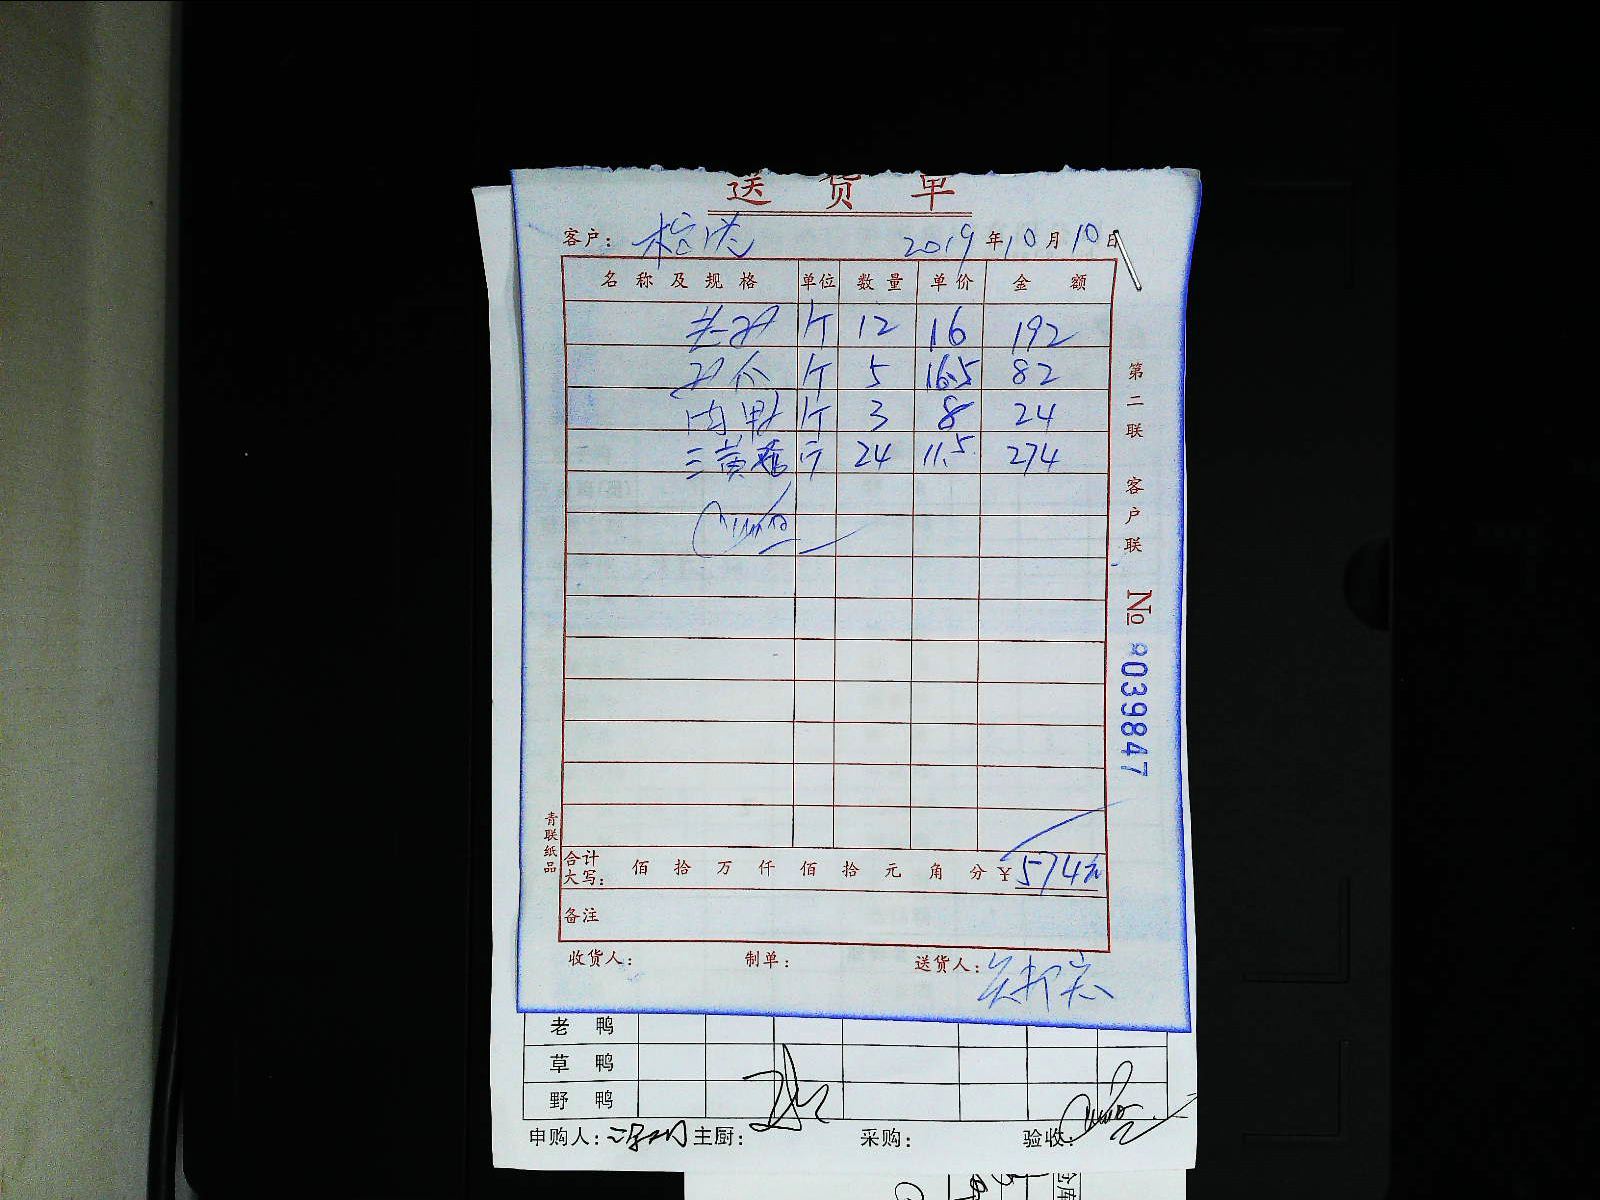 送货单
客户： 2019年10月10日
名称及规格 单位 数量 单价 金额
12 16 192
5 16.5 82
肉鸭 3 8 24
三黄 24 11.5 274
第二联 客户联 No 039847
青联纸品
合计大写： 佰 拾 万 仟 佰 拾 元 角 分 ¥574元
备注
收货人： 制单： 送货人：
老鸭
草鸭
野鸭
申购人： 主厨： 采购： 验收：